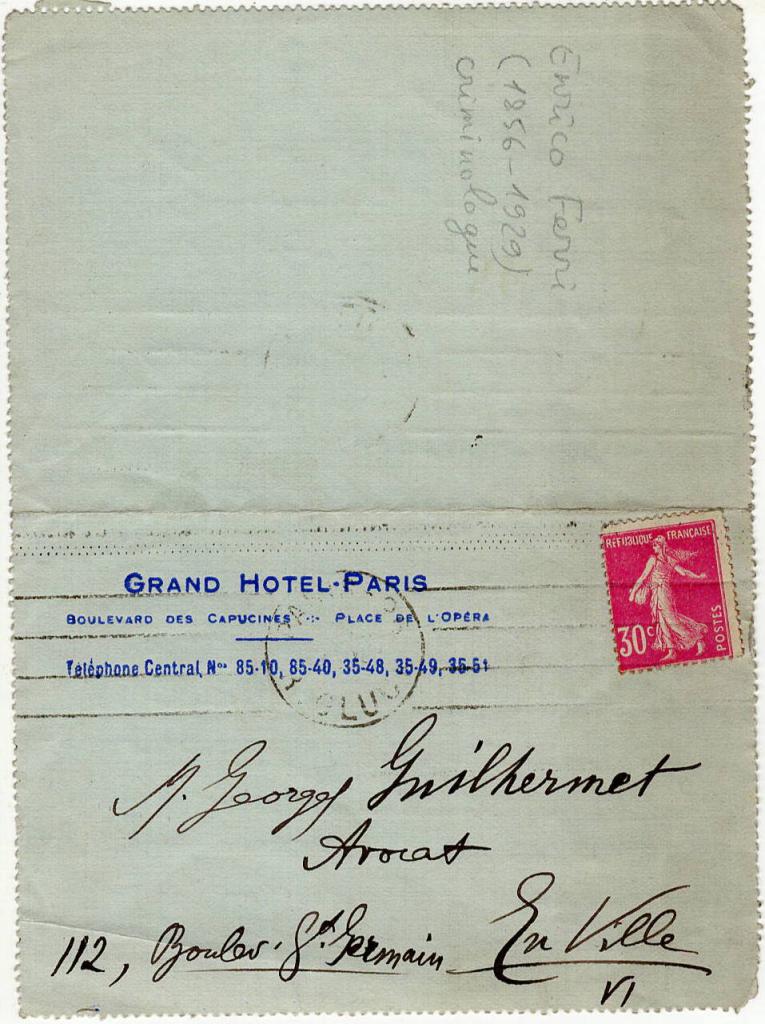 Enrico Ferri
(1856-1929)
criminologue
GRAND HOTEL-PARIS
BOULEVARD DES CAPUCINES PLACE DE L'OPÉRA
Téléphone Central, Nos 85-10, 85-40, 35-48, 35-49, 35-51
REPUBLIQUE FRANÇAISE
30c
POSTES
M. Georges Guilhermet
Avocat
112, Boulev. St Germain En Ville
VI